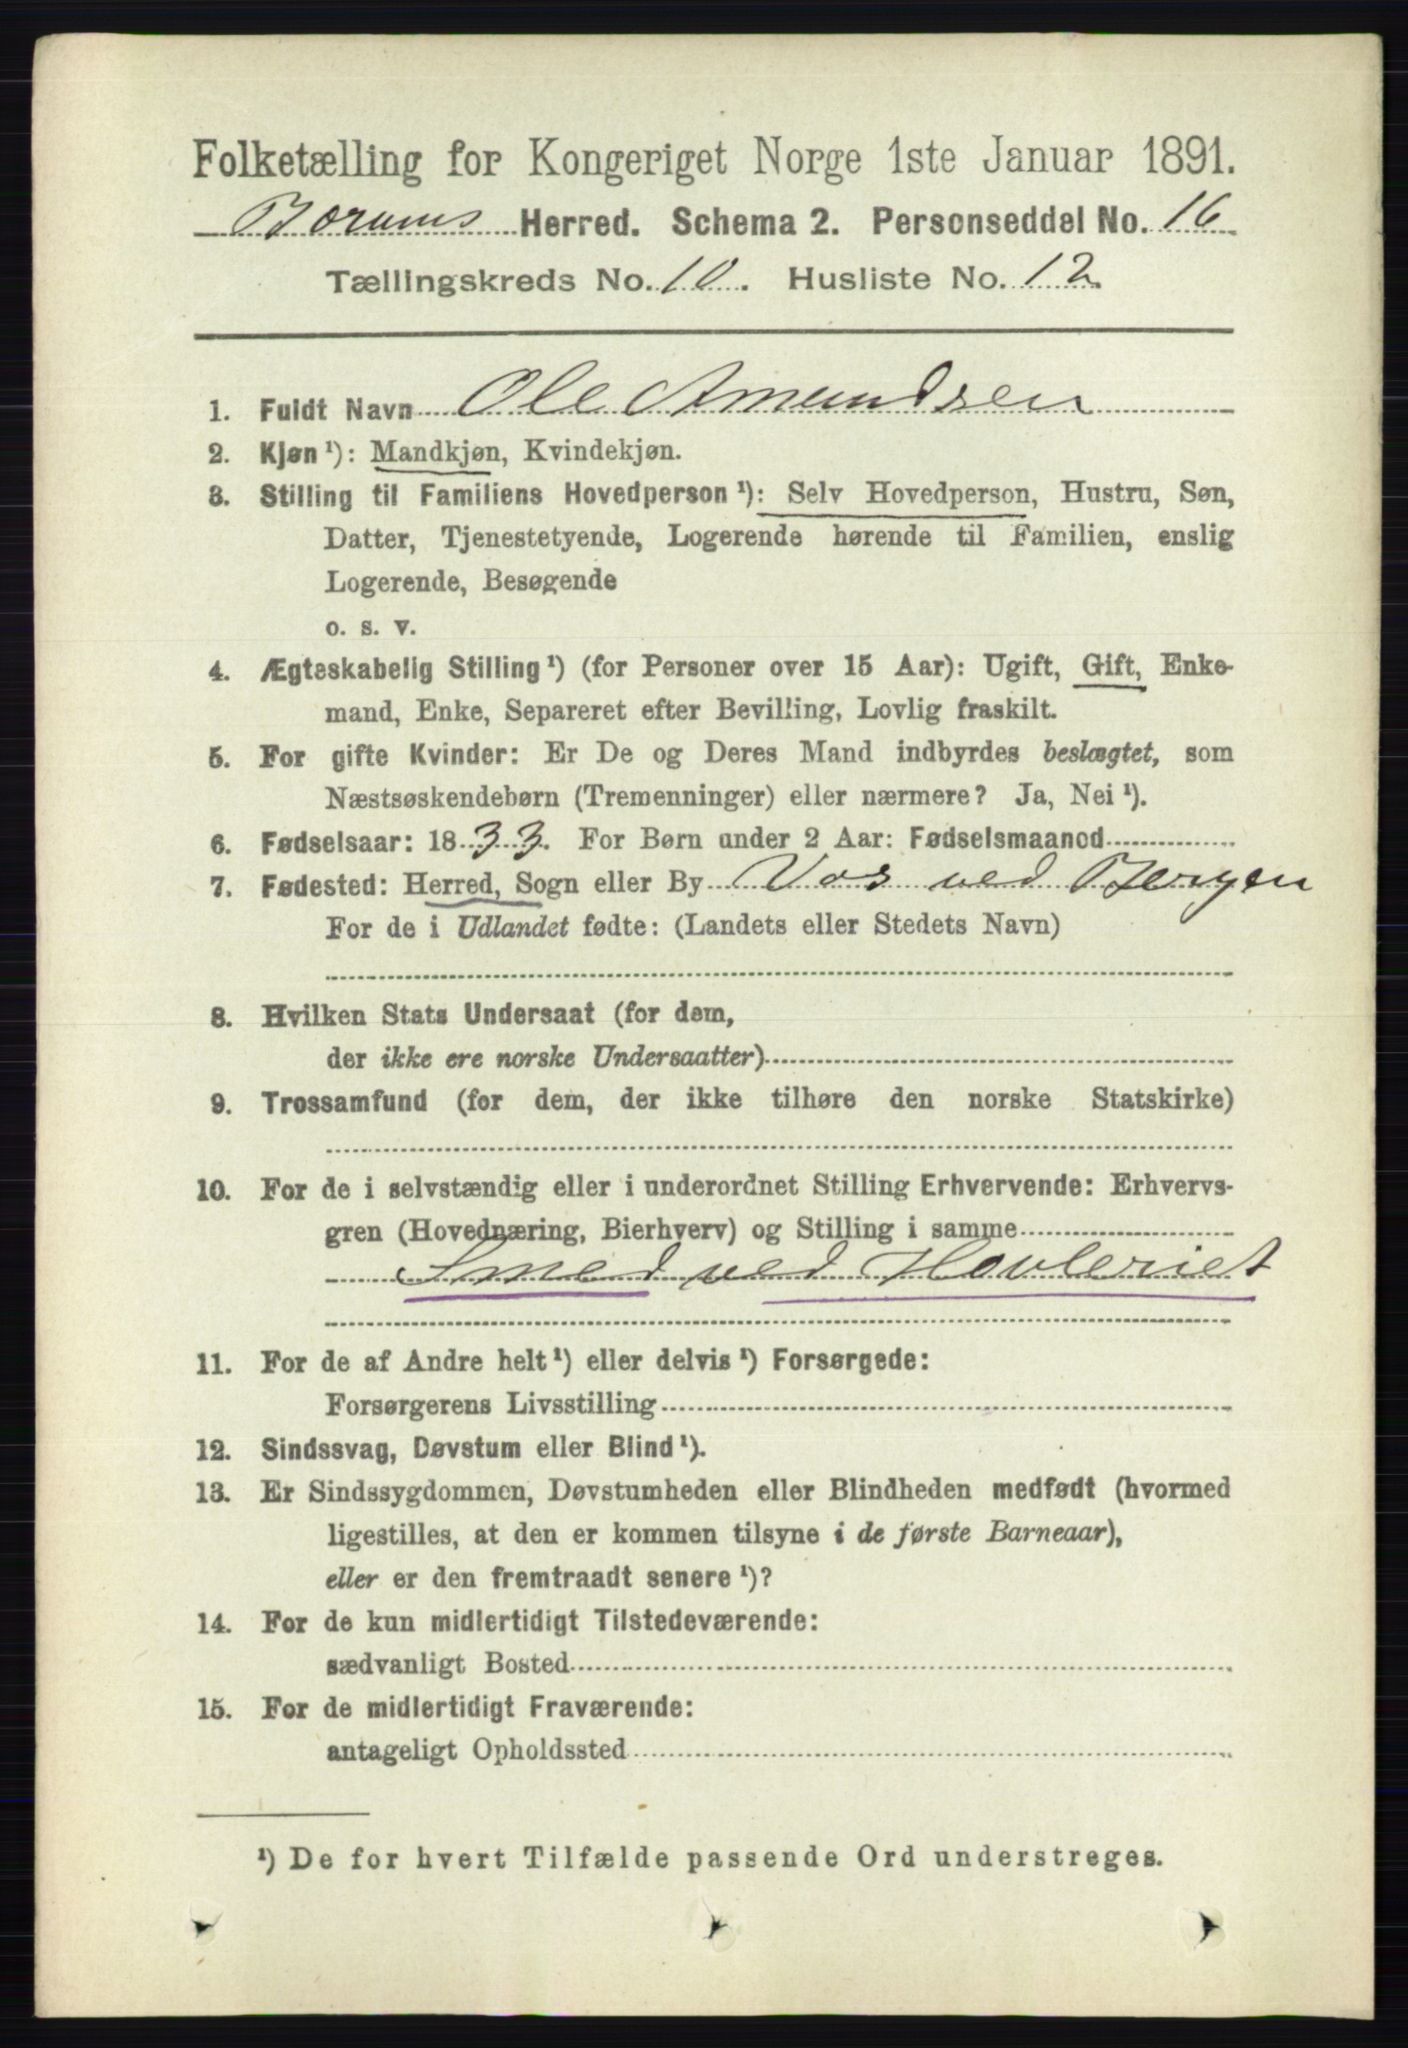 Folketælling for Kongeriget Norge 1ste Januar 1891.
Bærums Herred. Schema 2. Personseddel No. 16
Tællingskreds No. 10. Husliste No. 12.
1. Fuldt Navn Ole Amundsen
2. Kjøn ¹): Mandkjøn, Kvindekjøn.
3. Stilling til Familiens Hovedperson ¹): Selv Hovedperson, Hustru, Søn,
Datter, Tjenestetyende, Logerende hørende til Familien, enslig
Logerende, Besøgende
o. s. v.
4. Ægteskabelig Stilling ¹) (for Personer over 15 Aar): Ugift, Gift, Enke-
mand, Enke, Separeret efter Bevilling, Lovlig fraskilt.
5. For gifte Kvinder: Er De og Deres Mand indbyrdes beslægtet, som
Næstsøskendebørn (Tremenninger) eller nærmere? Ja, Nei ¹).
6. Fødselsaar: 1833. For Børn under 2 Aar: Fødselsmaaned
7. Fødested: Herred, Sogn eller By Vos ved Bergen
For de i Udlandet fødte: (Landets eller Stedets Navn)
8. Hvilken Stats Undersaat (for dem,
der ikke ere norske Undersaatter)
9. Trossamfund (for dem, der ikke tilhøre den norske Statskirke)
10. For de i selvstændig eller i underordnet Stilling Erhvervende: Erhvervs-
gren (Hovednæring, Bierhverv) og Stilling i samme
Smed ved Høvleriet
11. For de af Andre helt ¹) eller delvis ¹) Forsørgede:
Forsørgerens Livsstilling
12. Sindssvag, Døvstum eller Blind ¹).
13. Er Sindssygdommen, Døvstumheden eller Blindheden medfødt (hvormed
ligestilles, at den er kommen tilsyne i de første Barneaar),
eller er den fremtraadt senere ¹)?
14. For de kun midlertidigt Tilstedeværende:
sædvanligt Bosted
15. For de midlertidigt Fraværende:
antageligt Opholdssted
¹) De for hvert Tilfælde passende Ord understreges.